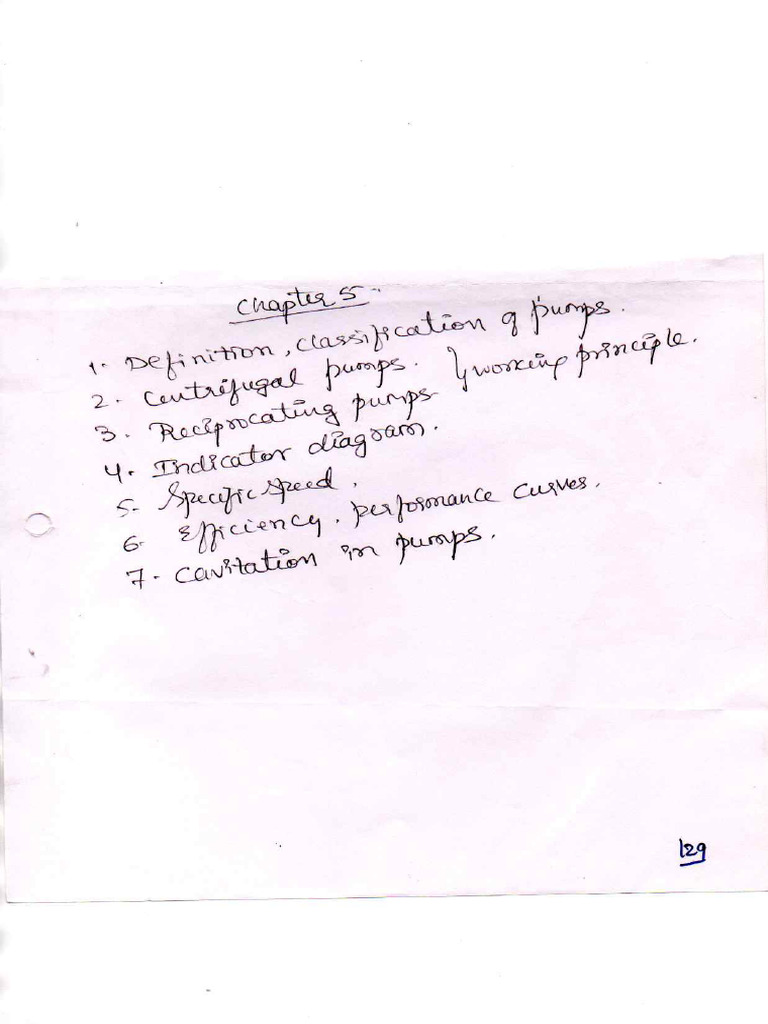 Chapter 5.
1. Definition, classification of pumps.
2. Centrifugal pumps. } working principle.
3. Reciprocating pumps
4. Indicator diagram.
5. Specific speed.
6. Efficiency. performance curves.
7. Cavitation in pumps.
129